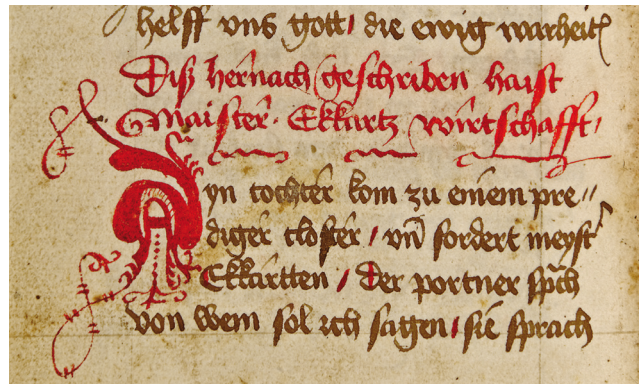 helff vns gott / die ewig warheit
Diß hernach geschriben haist
Maister · Ekkartz wirtschafft /
Ayn tochter kom zu einem pre〃
diger closter / vn̄ fordert meystˀ
Ekkartten / Der portner sp̄ch
von wem sol ich sagen / sie sprach